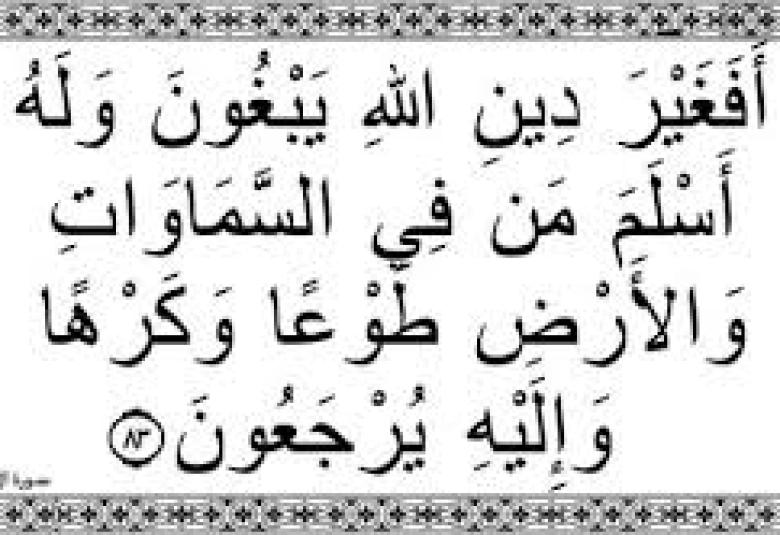 أَفَغَيْرَ دِينِ اللهِ يَبْغُونَ وَلَهُ
أَسْلَمَ مَن فِي السَّمَاوَاتِ
وَالأَرْضِ طَوْعًا وَكَرْهًا
وَإِلَيْهِ يُرْجَعُونَ ٨٣
سورة